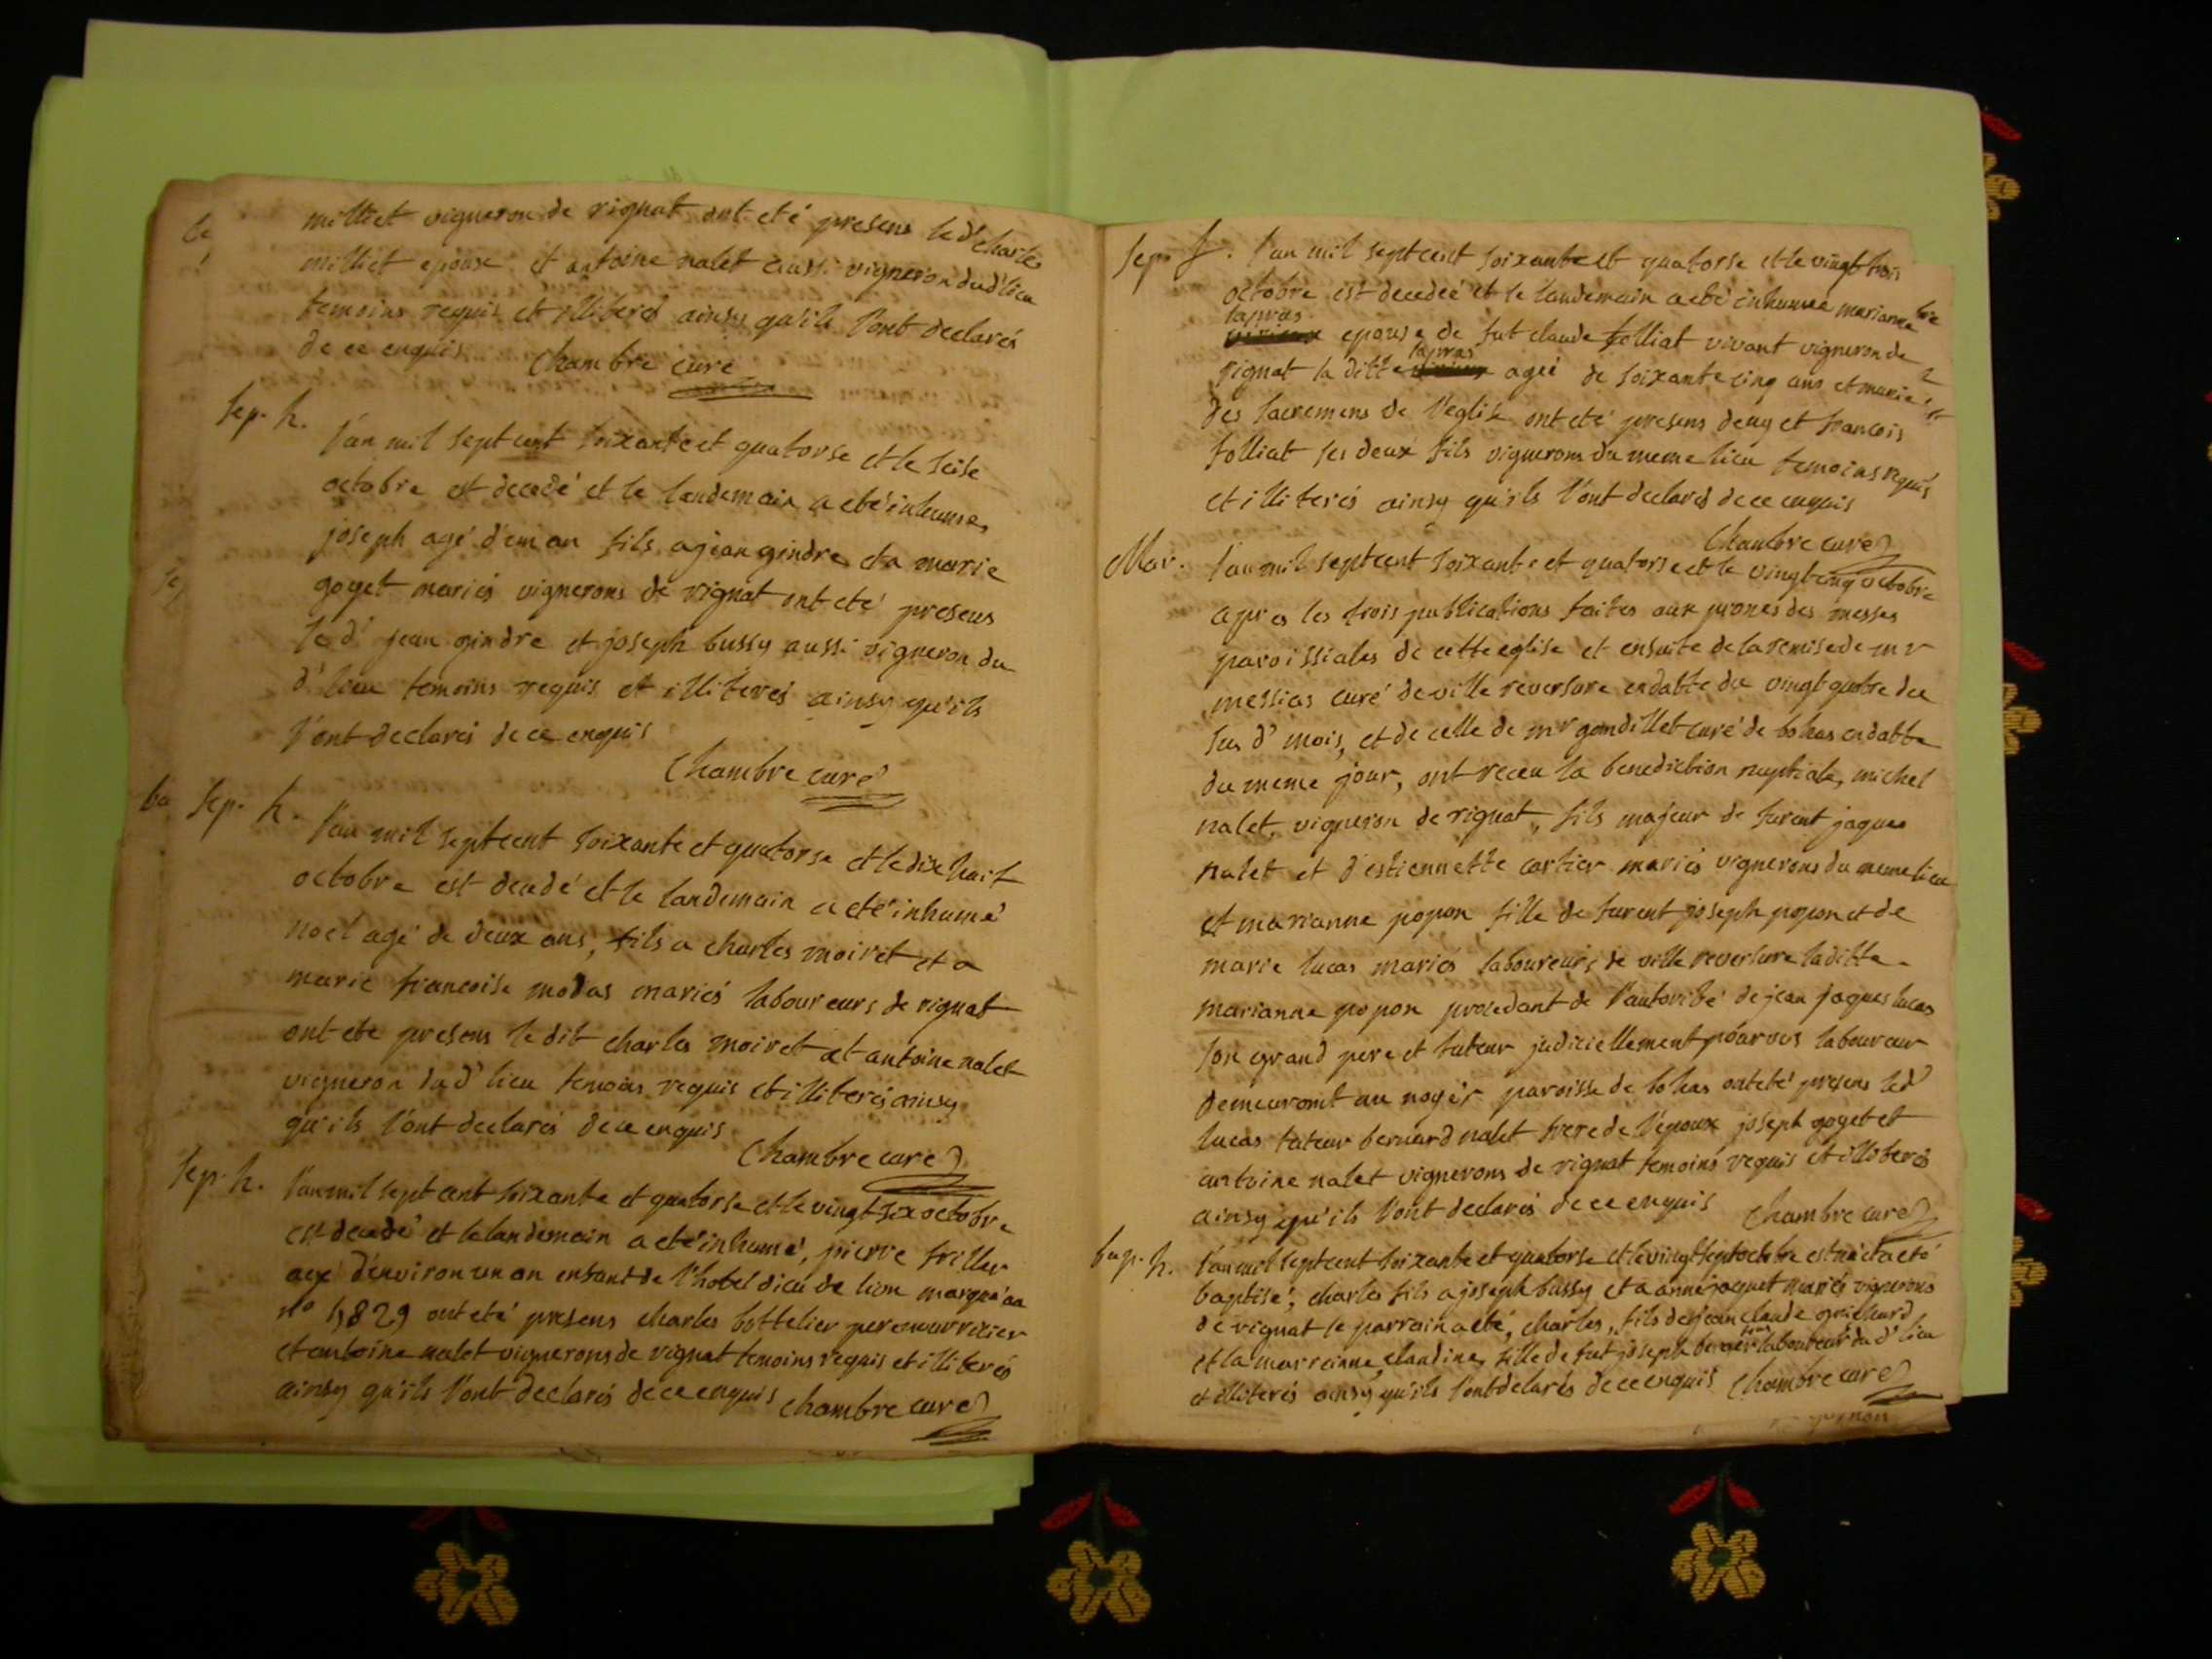 milliet vigneron de rignat ont eté presens le d' charles
milliet epoux et antoine nalet aussi vigneron dud' lieu
temoins requis et illiterés ainsy qu'ils l'ont declarés
de ce enquis Chambre curé
Sep. h.
l'an mil sept cent soixante et quatorse et le seise
octobre est decedé et le landemain a eté inhumé
joseph agé d'un an fils a jean gindre et a marie
goyet mariés vignerons de rignat ont eté presens
le d' jean gindre et joseph bussy aussi vigneron du
d' lieu temoins requis et illiterés ainsy qu'ils
l'ont declarés de ce enquis
Chambre curé
Sep. h.
l'an mil sept cent soixante et quatorse et le dix huit
octobre est decedé et le landemain a eté inhumé
noel agé de deux ans, fils a charles moiret et a
marie francoise modas mariés laboureurs de rignat
ont eté presens le dit charles moiret et antoine nalet
vigneron dud' lieu temoins requis et illiterés ainsy
qu'ils l'ont declarés de ce enquis
Chambre curé
Sep. h.
l'an mil sept cent soixante et quatorse et le vingt six octobre
est decedé et le landemain a eté inhumé, pierre
agé d'environ un an enfant de l'hotel dieu de lion marqué au
n° 4829 ont eté presens charles bottelier pere nourricier
et antoine nalet vignerons de rignat temoins requis et illiterés
ainsy qu'ils l'ont declarés de ce enquis Chambre curé
Sep. f. l'an mil sept cent soixante et quatorse et le vingt trois
octobre est decedeé et le landemain a eté inhumeé marianne
epouse de fut claude folliat vivant vigneron de
rignat la ditte ageé de soixante cinq ans et munie
des sacremens de l'eglise ont eté presens deny et francois
folliat ses deux fils vignerons du meme lieu temoins requis
et illiterés ainsy qu'ils l'ont declarés de ce enquis
Chambre curé
Mar. l'an mil sept cent soixante et quatorse et le vingt cinq octobre
apres les trois publications faites aux prones des messes
paroissiales de cette eglise et ensuite de la remise de mr
messias curé de ville reversure en datte du vingt quatre du
sus d' mois, et de celle de mr gondillet curé de bohas en datte
du meme jour, ont receu la benediction nuptiale, michel
nalet, vigneron de rignat, fils majeur de furent jaques
nalet et d'estiennette cartier mariés vignerons du meme lieu
et marianne popon fille de furent joseph popon et de
marie lucas mariés laboureurs de ville reversure la ditte
marianne popon procedant de l'autorité de jean jaques lucas
son grand pere et tuteur judiciellement pourvus laboureur
demeurant au noyer paroisse de bohas ont eté presens led'
lucas tuteur bernard nalet frere de l'epoux joseph goyet et
antoine nalet vignerons de rignat temoins requis et illiterés
ainsy qu'ils l'ont declarés de ce enquis Chambre curé
bap. h. l'an mil sept cent soixante et quatorse et le vingt sept octobre est né et a eté
baptisé, charles fils a joseph bussy et a anne jaquet mariés vignerons
de rignat le parrain a eté, charles, fils de jean claude
et la marrainne, claudine, fille de fut joseph laboureur du d' lieu
et illiterés ainsy qu'ils l'ont declarés de ce enquis Chambre curé